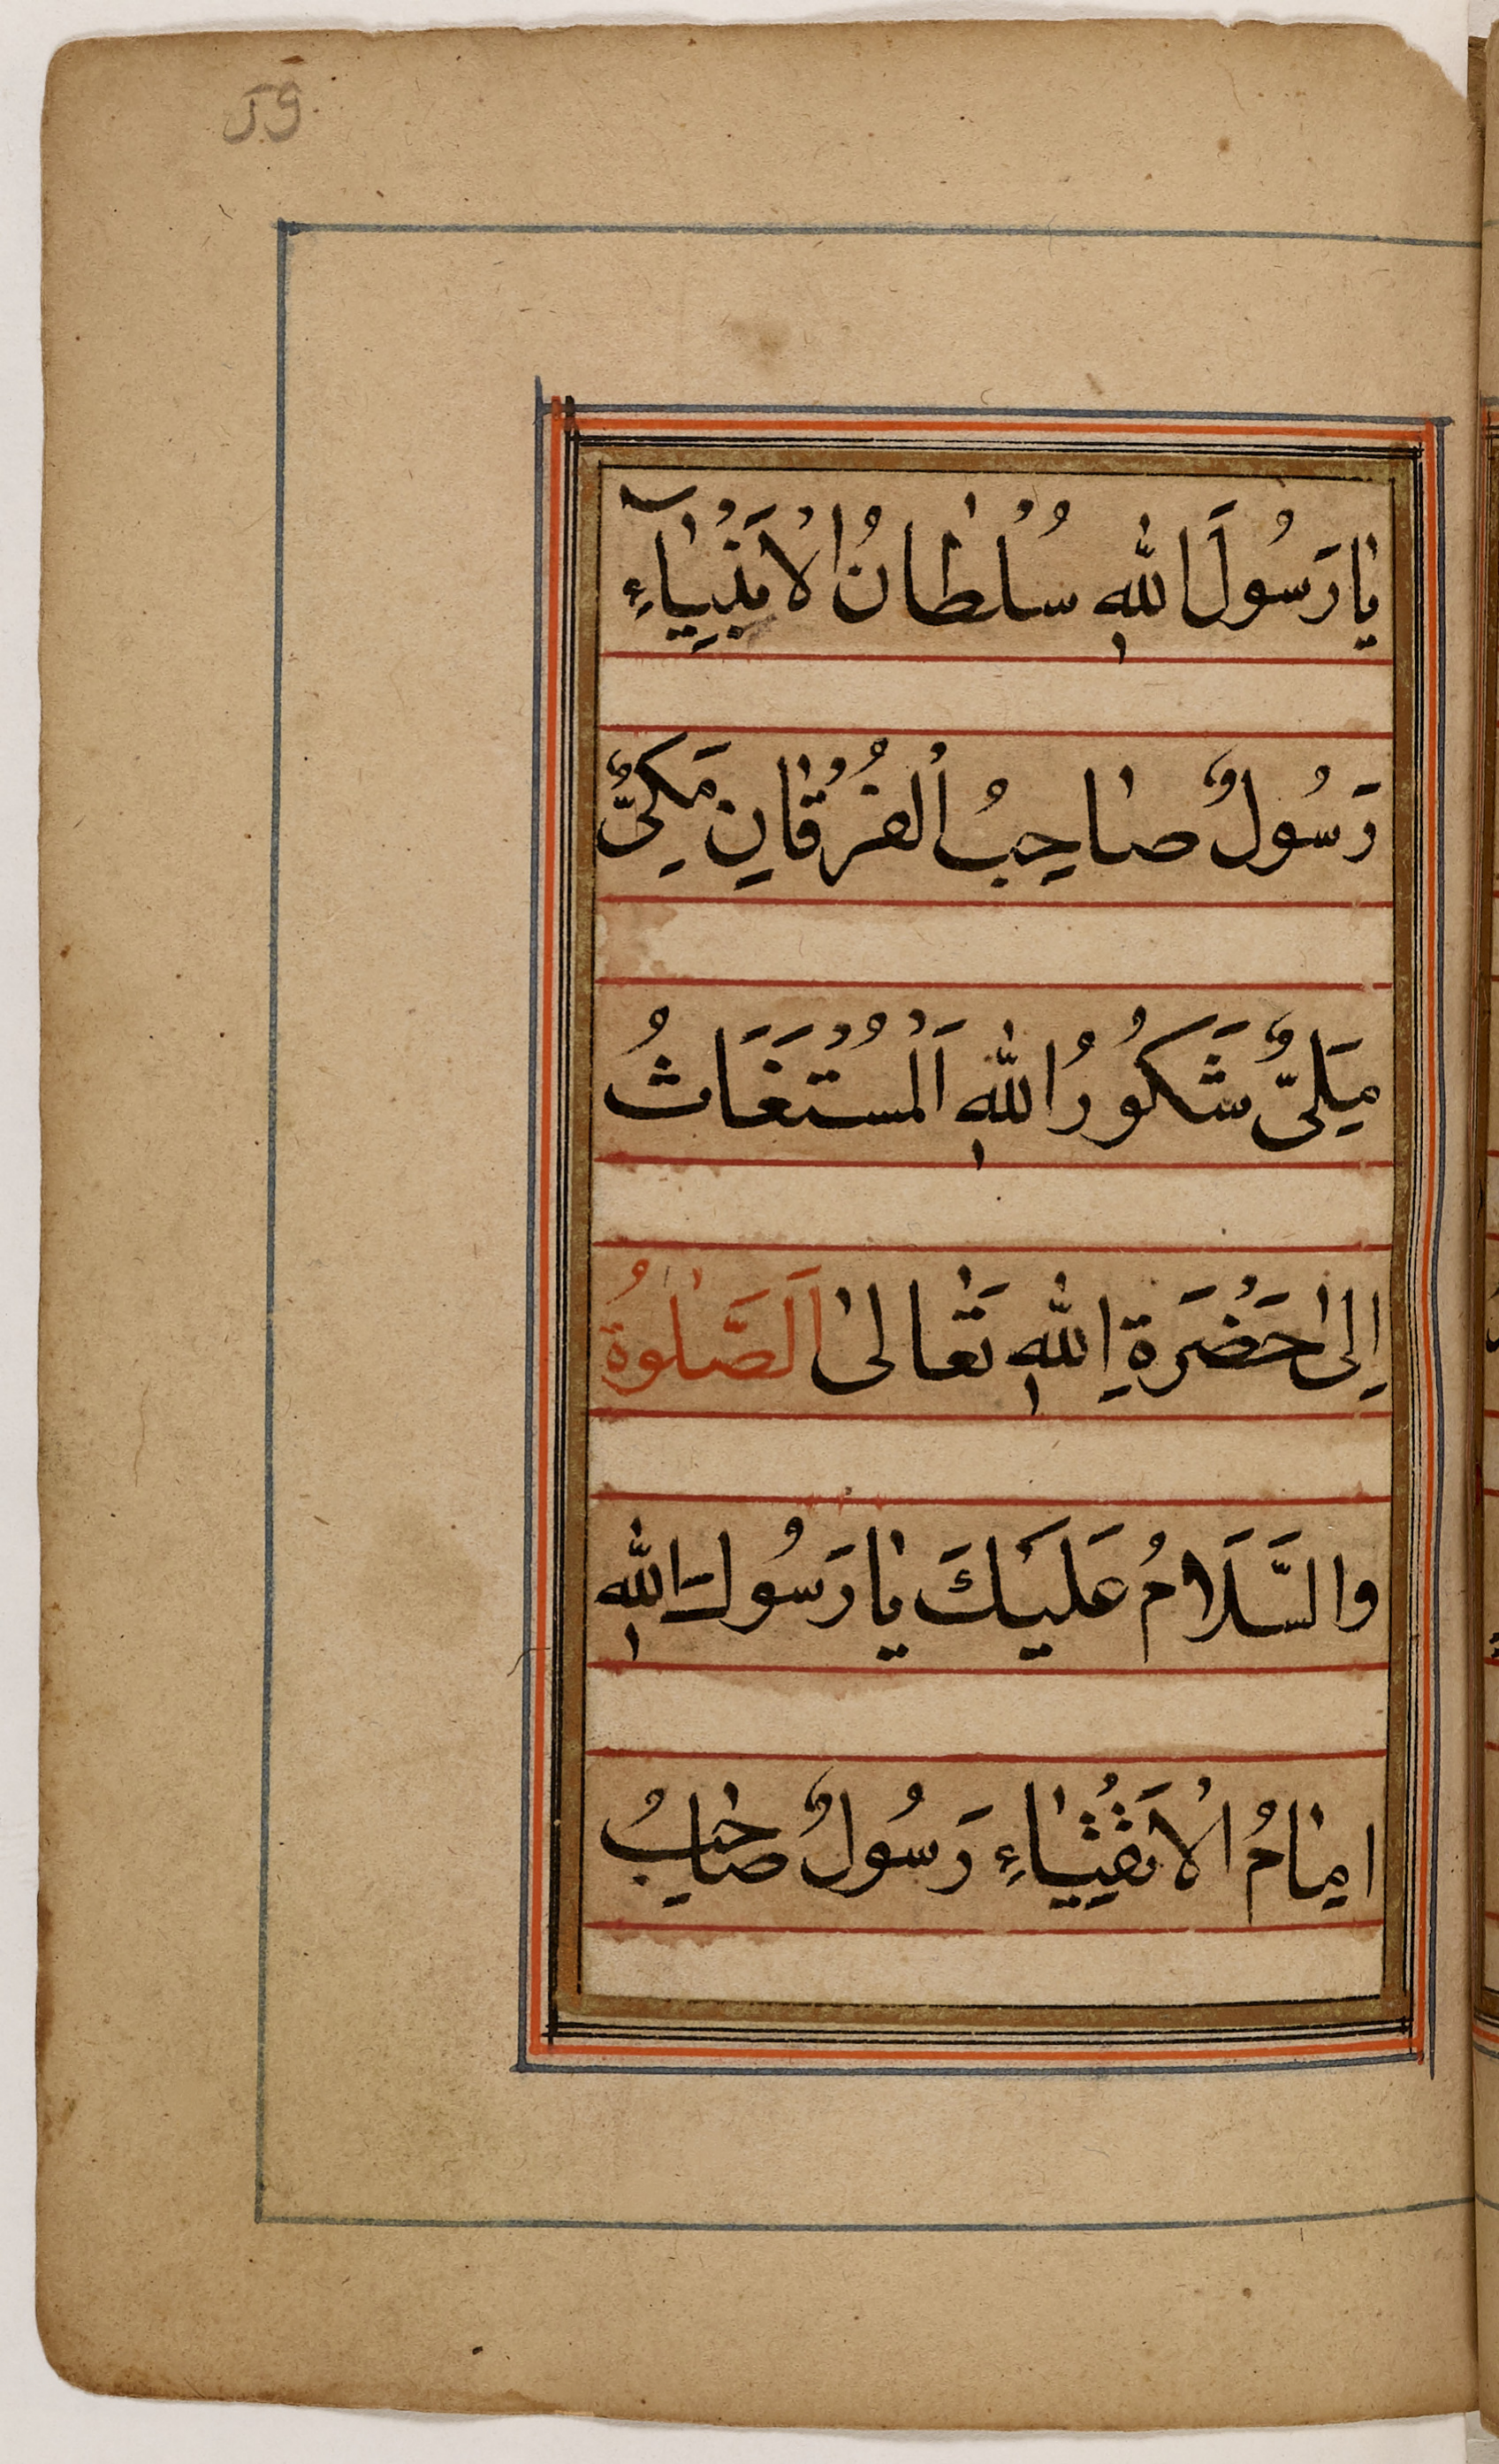 59
يَا رَسُولَ اللهِ سُلْطَانُ الْاَنْبِيَاءِ
رَسُولٌ صَاحِبُ الْفُرْقَانِ مَكِّىٌّ
مَلِىٌّ شَكُورُ اللهِ اَلْمُسْتَغَاثُ
اِلىٰ حَضْرَةِ اللهِ تَعَالىٰ اَلصَّلٰوةُ
والسَّلَامُ عَلَيْكَ يَا رَسُولَ اللهِ
اِمَامُ الْاَتْقِيَاءِ رَسُولٌ صَاحِبُ